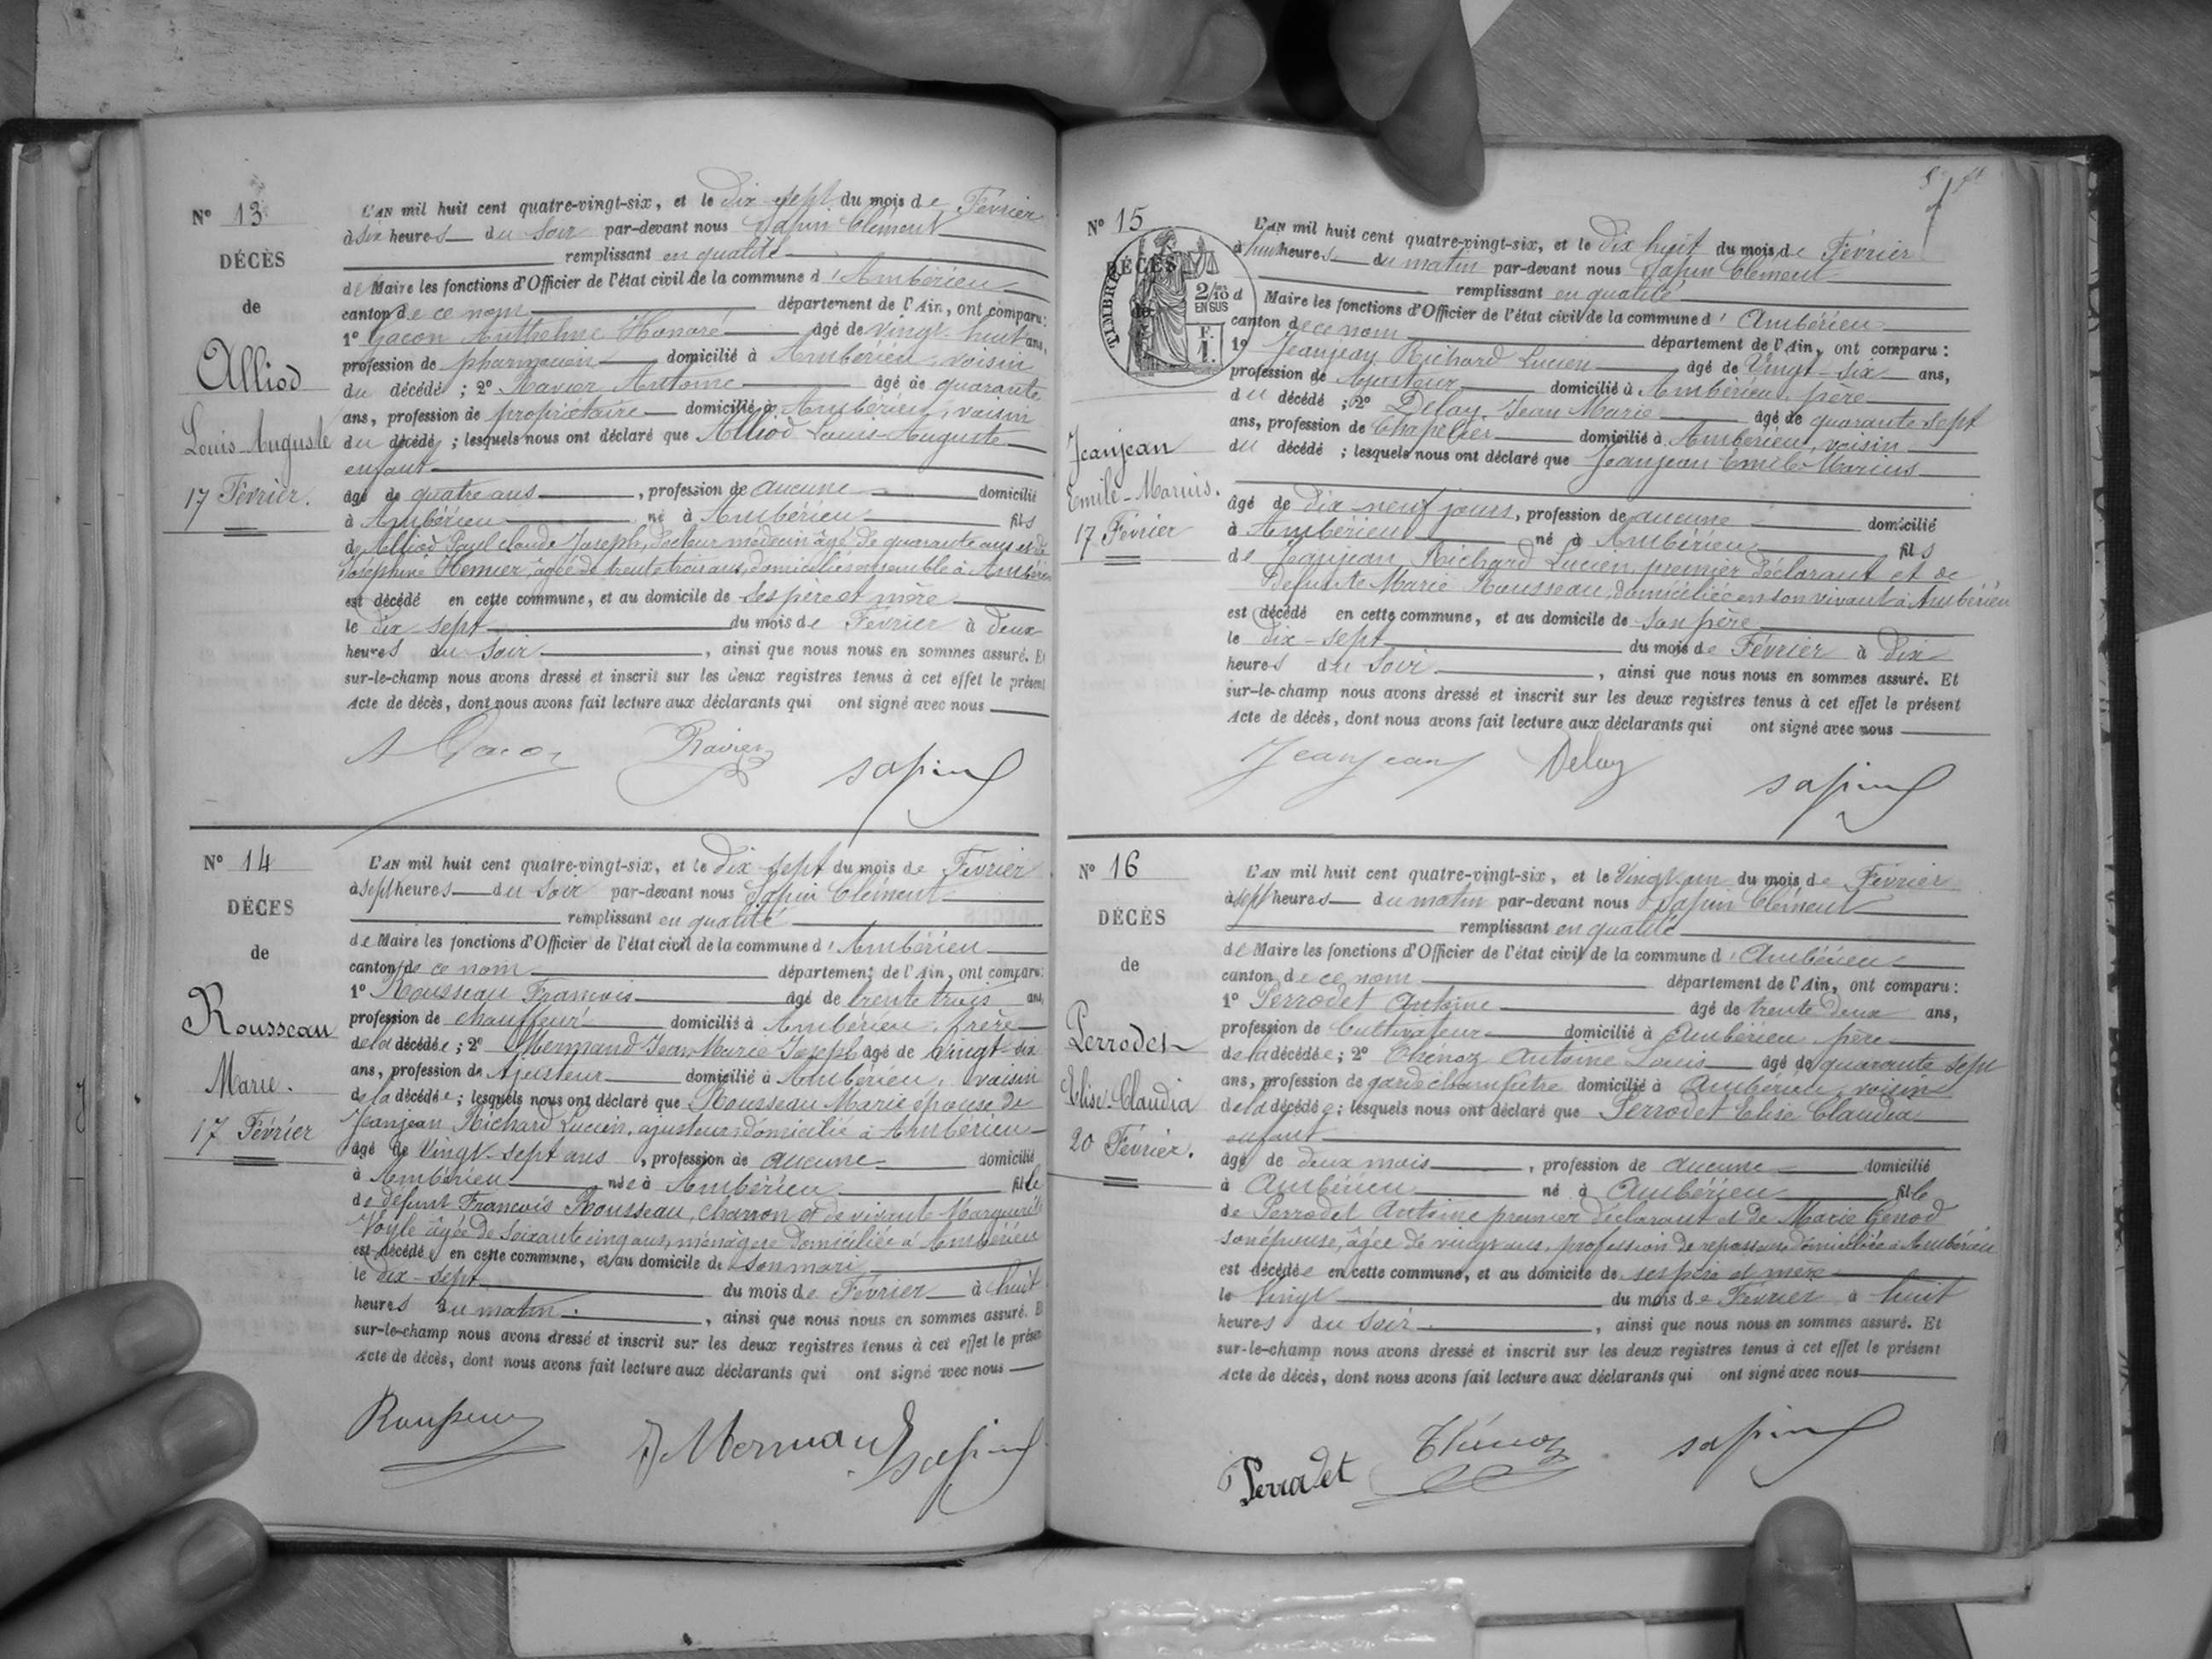 N° 13
DÉCÈS
de
Alliod
Louis Auguste
17 Février.
L'AN mil huit cent quatre-vingt-six, et le Dix-sept du mois de Février
à six heures du soir par-devant nous Sapin Clément
remplissant en qualité
de Maire les fonctions d'Officier de l'état civil de la commune d'Ambérieu
canton de ce nom département de l'Ain, ont comparu:
1° Gacon Anthelme Honoré âgé de vingt-huit ans,
profession de pharmacien domicilié à Ambérieu, voisin
du décédé ; 2° Ravier Antoine âgé de quarante
ans, profession de propriétaire domicilié à Ambérieu, voisin
du décédé ; lesquels nous ont déclaré que Alliod Louis-Auguste
enfant
âgé de quatre ans, profession de aucune domicilié
à Ambérieu né à Ambérieu fils
de Alliod Paul Claude Joseph, docteur médecin âgé de quarante ans et de
Joséphine Hemier, âgée de trente trois ans, domiciliés ensemble à Ambérieu
est décédé en cette commune, et au domicile de ses père et mère
le dix-sept du mois de Février à deux
heures du soir, ainsi que nous nous en sommes assuré. Et
sur-le-champ nous avons dressé et inscrit sur les deux registres tenus à cet effet le présent
Acte de décès, dont nous avons fait lecture aux déclarants qui ont signé avec nous
A Gacon Ravier Sapin
N° 14
DÉCÈS
de
Rousseau
Marie.
17 Février
L'AN mil huit cent quatre-vingt-six, et le Dix-sept du mois de Février
à sept heures du soir par-devant nous Sapin Clément
remplissant en qualité
de Maire les fonctions d'Officier de l'état civil de la commune d'Ambérieu
canton de ce nom département de l'Ain, ont comparu:
1° Rousseau François âgé de trente trois ans,
profession de chauffeur domicilié à Ambérieu, frère
de la décédée ; 2° Mermand Jean Marie Joseph âgé de vingt-six
ans, profession de Ajusteur domicilié à Ambérieu, voisin
de la décédée ; lesquels nous ont déclaré que Rousseau Marie épouse de
Jeanjean Richard Lucien, ajusteur domicilié à Ambérieu
âgé de Vingt-sept ans, profession de aucune domicilié
à Ambérieu née à Ambérieu fille
de défunt François Rousseau, charron et de vivante Marguerite
âgée de soixante cinq ans, ménagère domiciliée à Ambérieu
est décédée en cette commune, et au domicile de son mari
le dix-sept du mois de Février à huit
heures du matin, ainsi que nous nous en sommes assuré. Et
sur-le-champ nous avons dressé et inscrit sur les deux registres tenus à cet effet le présent
Acte de décès, dont nous avons fait lecture aux déclarants qui ont signé avec nous
Rousseau J Mermand Sapin
N° 15
DÉCÈS
de
TIMBRE
2/10 d
EN SUS
F.
1.
Jeanjean
Emile-Marius.
17 Février
L'AN mil huit cent quatre-vingt-six, et le Dix huit du mois de Février
à huit heures du matin par-devant nous Sapin Clément
remplissant en qualité
Maire les fonctions d'Officier de l'état civil de la commune d'Ambérieu
canton de ce nom département de l'Ain, ont comparu:
1° Jeanjean Richard Lucien âgé de Vingt-six ans,
profession de Ajusteur domicilié à Ambérieu, père
du décédé ; 2° Delay Jean Marie âgé de quarante sept
ans, profession de Chapelier domicilié à Ambérieu, voisin
du décédé ; lesquels nous ont déclaré que Jeanjean Emile Marius
âgé de dix-neuf jours, profession de aucune domicilié
à Ambérieu né à Ambérieu fils
de Jeanjean Richard Lucien, premier déclarant et de
Défunte Marie Rousseau, domiciliée en son vivant à Ambérieu
est décédé en cette commune, et au domicile de son père
le dix-sept du mois de Février à dix
heures du soir, ainsi que nous nous en sommes assuré. Et
sur-le-champ nous avons dressé et inscrit sur les deux registres tenus à cet effet le présent
Acte de décès, dont nous avons fait lecture aux déclarants qui ont signé avec nous
Jeanjean Delay Sapin
N° 16
DÉCÈS
de
Perrodet
Elise-Claudia
20 Février.
L'AN mil huit cent quatre-vingt-six, et le Vingt-un du mois de Février
à sept heures du matin par-devant nous Sapin Clément
remplissant en qualité
de Maire les fonctions d'Officier de l'état civil de la commune d'Ambérieu
canton de ce nom département de l'Ain, ont comparu:
1° Perrodet Antoine âgé de trente deux ans,
profession de Cultivateur domicilié à Ambérieu, père
de la décédée ; 2° Thénoz Antoine Louis âgé de quarante sept
ans, profession de garde champêtre domicilié à Ambérieu, voisin
de la décédée ; lesquels nous ont déclaré que Perrodet Elise Claudia
enfant
âgé de deux mois, profession de aucune domicilié
à Ambérieu né à Ambérieu fille
de Perrodet Antoine premier déclarant et de Marie Genod
son épouse, âgée de vingt ans, profession de repasseuse domiciliée à Ambérieu
est décédée en cette commune, et au domicile de ses père et mère
le Vingt du mois de Février à huit
heures du soir, ainsi que nous nous en sommes assuré. Et
sur-le-champ nous avons dressé et inscrit sur les deux registres tenus à cet effet le présent
Acte de décès, dont nous avons fait lecture aux déclarants qui ont signé avec nous
Perrodet Thénoz Sapin